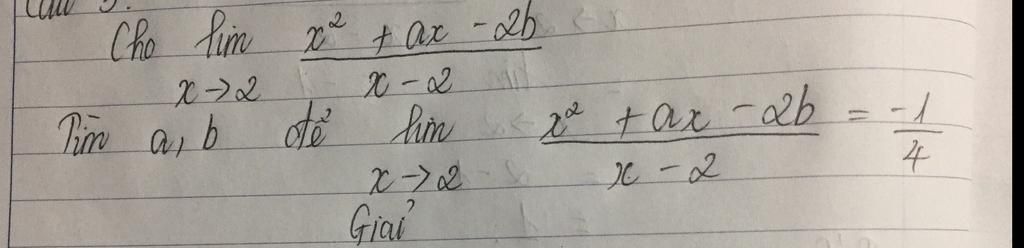 Câu 3:
Cho lim x² + ax - 2b
x→2 x - 2
Tìm a, b để lim x² + ax - 2b = -1
x→2 x - 2 4
Giải